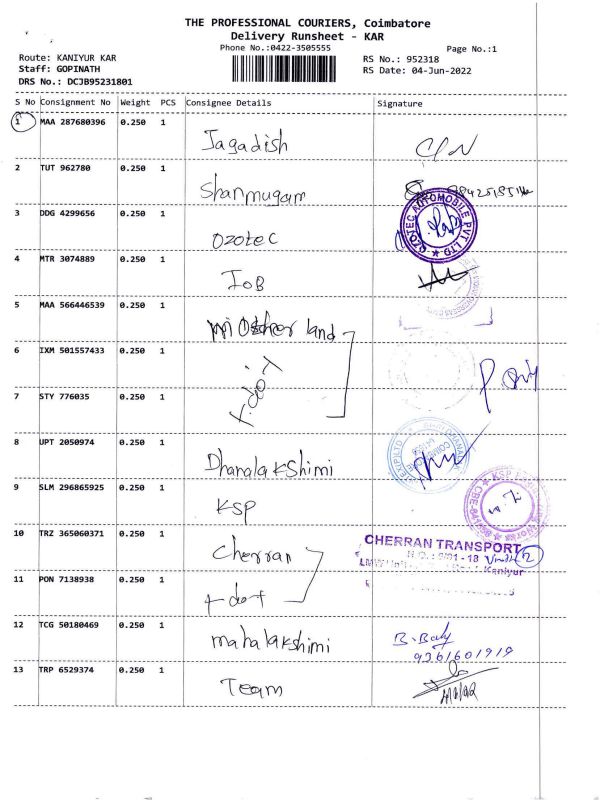 THE PROFESSIONAL COURIERS, Coimbatore
Delivery Runsheet - KAR
Phone No.:0422-3505555
Page No.:1
Route: KANIYUR KAR
RS No.: 952318
Staff: GOPINATH
RS Date: 04-Jun-2022
DRS No.: DCJB95231801
S No Consignment No Weight PCS Consignee Details Signature
1 MAA 287680396 0.250 1 Jagadish
2 TUT 962780 0.250 1 Shanmugam
3 DDG 4299656 0.250 1 Ozotec
OZOTEC AUTOMOBILE PVT LTD
4 MTR 3074889 0.250 1 IOB
5 MAA 566446539 0.250 1 land
6 IXM 501557433 0.250 1
7 STY 776035 0.250 1
8 UPT 2050974 0.250 1 Dhanalakshimi
9 SLM 296865925 0.250 1 KSP
KSP
10 TRZ 365060371 0.250 1 Cherran
CHERRAN TRANSPORT
2
Kaniyur
11 PON 7138938 0.250 1
12 TCG 50180469 0.250 1 mahalakshimi
9361601919
13 TRP 6529374 0.250 1 Team